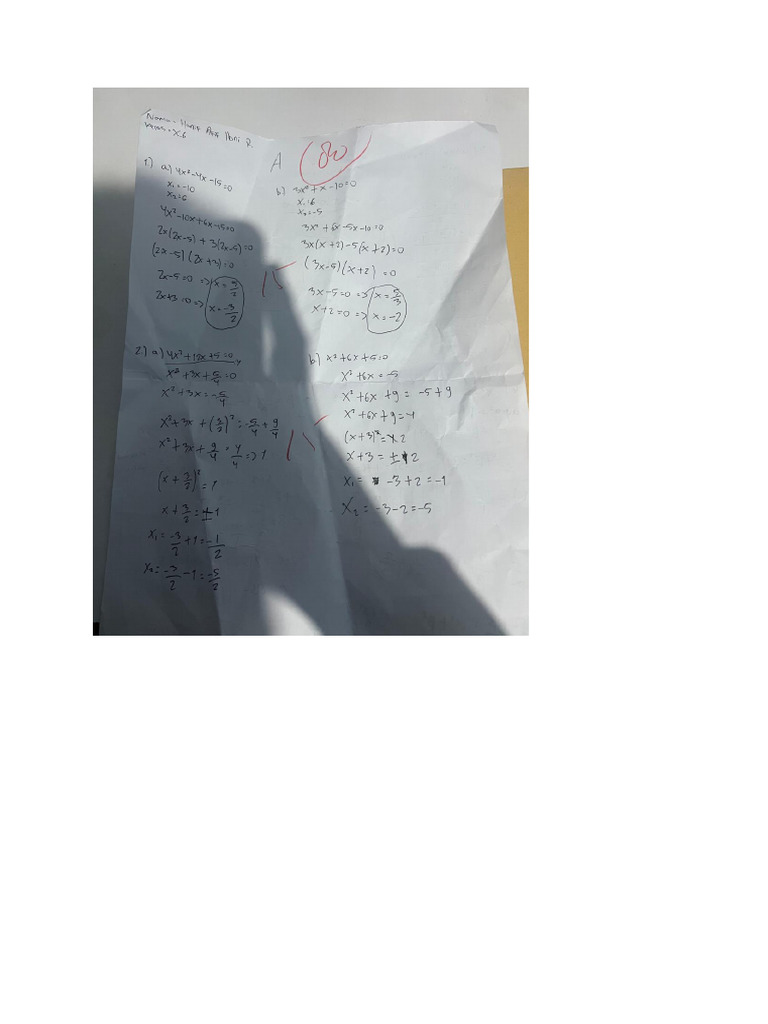 Nama =
Kelas = X.6
A
80
1.) a) 4x² - 4x - 15 = 0
x₁ = -10
x₂ = 6
4x² - 10x + 6x - 15 = 0
2x(2x - 5) + 3(2x - 5) = 0
(2x - 5) (2x + 3) = 0
2x - 5 = 0 => x = 5/2
2x + 3 = 0 => x = -3/2
15
b) 3x² + x - 10 = 0
x₁ 6
x₂ = -5
3x² + 6x - 5x - 10 = 0
3x(x + 2) - 5(x + 2) = 0
(3x - 5) (x + 2) = 0
3x - 5 = 0 => x = 5/3
x + 2 = 0 => x = -2
2.) a) 4x² + 12x + 5 = 0
x² + 3x + 5/4 = 0
x² + 3x = -5/4
x² + 3x + (3/2)² = -5/4 + 9/4
x² + 3x + 9/4 = 4/4 => 1
(x + 3/2)² = 1
x + 3/2 = ± 1
x₁ = -3/2 + 1 = -1/2
x₂ = -3/2 - 1 = -5/2
15
b) x² + 6x + 5 = 0
x² + 6x = -5
x² + 6x + 9 = -5 + 9
x² + 6x + 9 = 4
(x + 3)² = 2
x + 3 = ± 2
x₁ = -3 + 2 = -1
x₂ = -3 - 2 = -5